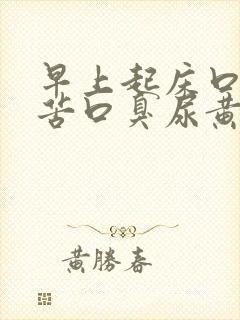 早上起床口
苦口臭尿黄
黄勝春